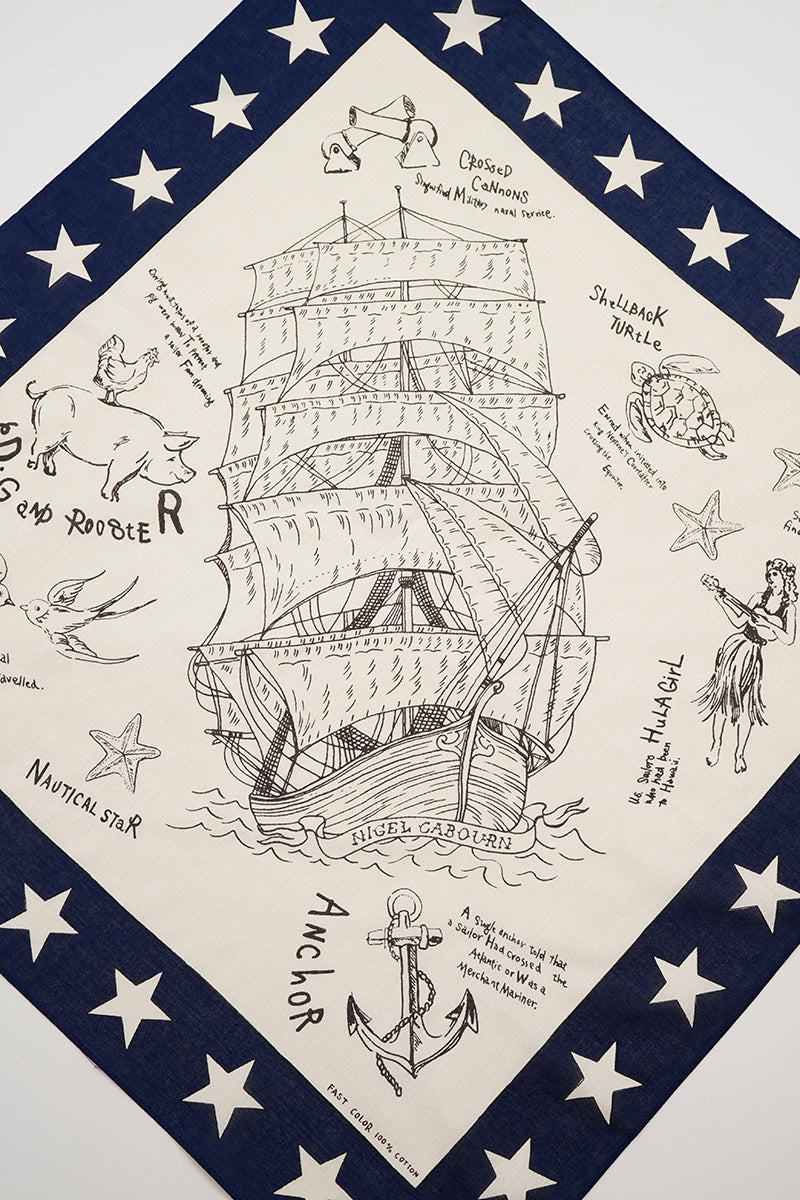 CRossed
CaNNoNS
Signified Military naval service.
SheLLBACK
TURtLe
Earned when initiated into
King Neptune's Court after
crossing the Equator.
During
a
pig were
To prevent
a sailor From drowning
PIG aND ROOSteR
al
avelled.
NAUTICAL StaR
S
fin
HuLAGirL
U.S. Sailors
who had been
to Hawaii.
NIGEL CABOURN
ANchoR
A Single anchor told that
a sailor Had crossed the
Atlantic or Was a
Merchant Mariner.
FAST COLOR 100% COTTON